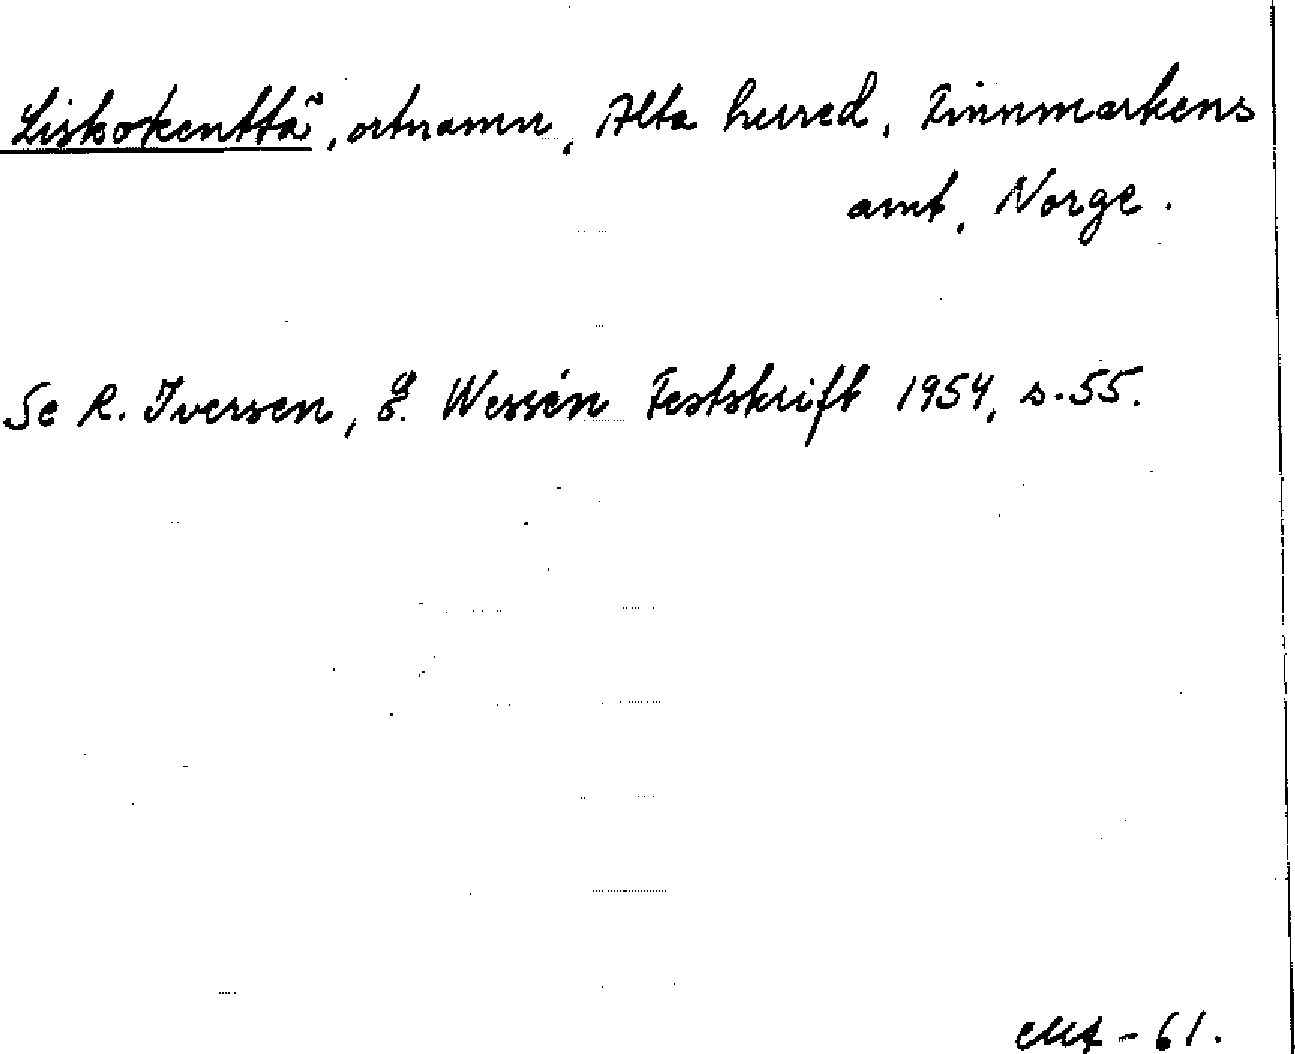 Liskokenttä, ortnamn, Alta herred, Finnmarkens
amt, Norge.
Se R. Iversen, E. Wessén Festskrift 1954, s. 55.
-61.